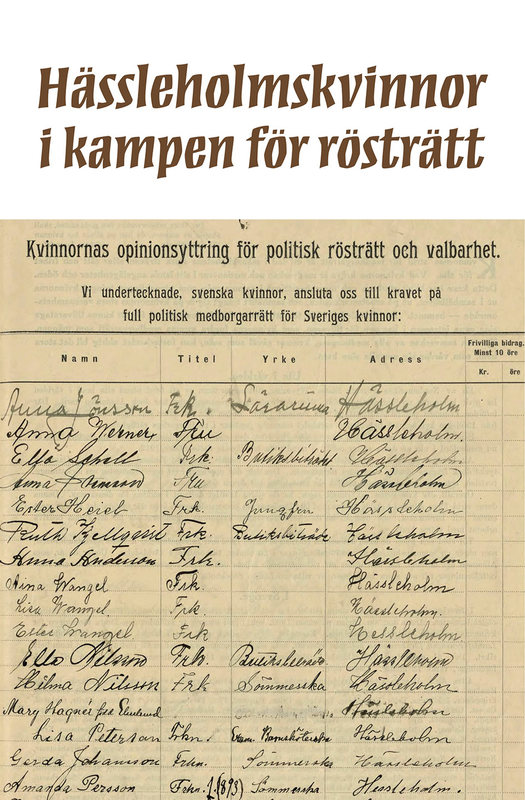 Hässleholmskvinnor
i kampen för rösträtt
Kvinnornas opinionsyttring för politisk rösträtt och valbarhet.
Vi undertecknade, svenska kvinnor, ansluta oss till kravet på
full politisk medborgarrätt för Sveriges kvinnor:
Frivilliga bidrag.
Minst 10 öre
Namn Titel Yrke Adress Kr. öre
Anna Jönsson Frk. Lärarinna Hässleholm
Anna Werner Fru Hässleholm
Elsa Schell Frk. Butiksbiträde Hässleholm
Anna Svensson Fru Hässleholm
Ester Heieb Frk. Jungfru Hässleholm
Ruth Kjellqvist Frk. Butiksbiträde Hässleholm
Anna Anderson Frk. Hässleholm
Aina Wangel Frk. Hässleholm
Lisa Wangel Frk Hässleholm.
Ester Wangel Frk Hessleholm
Ella Nilsson Frk. Butiksbiträde Hässleholm
Hilma Nilsson Frk Sömmerska Hässleholm
Mary Hagner född Hässleholm
Lisa Peterson Frkn. Hässleholm
Gerda Johansson Frkn. Sömmerska Hässleholm
Amanda Persson Frkn. f. (1893) Sömmerska Hessleholm.